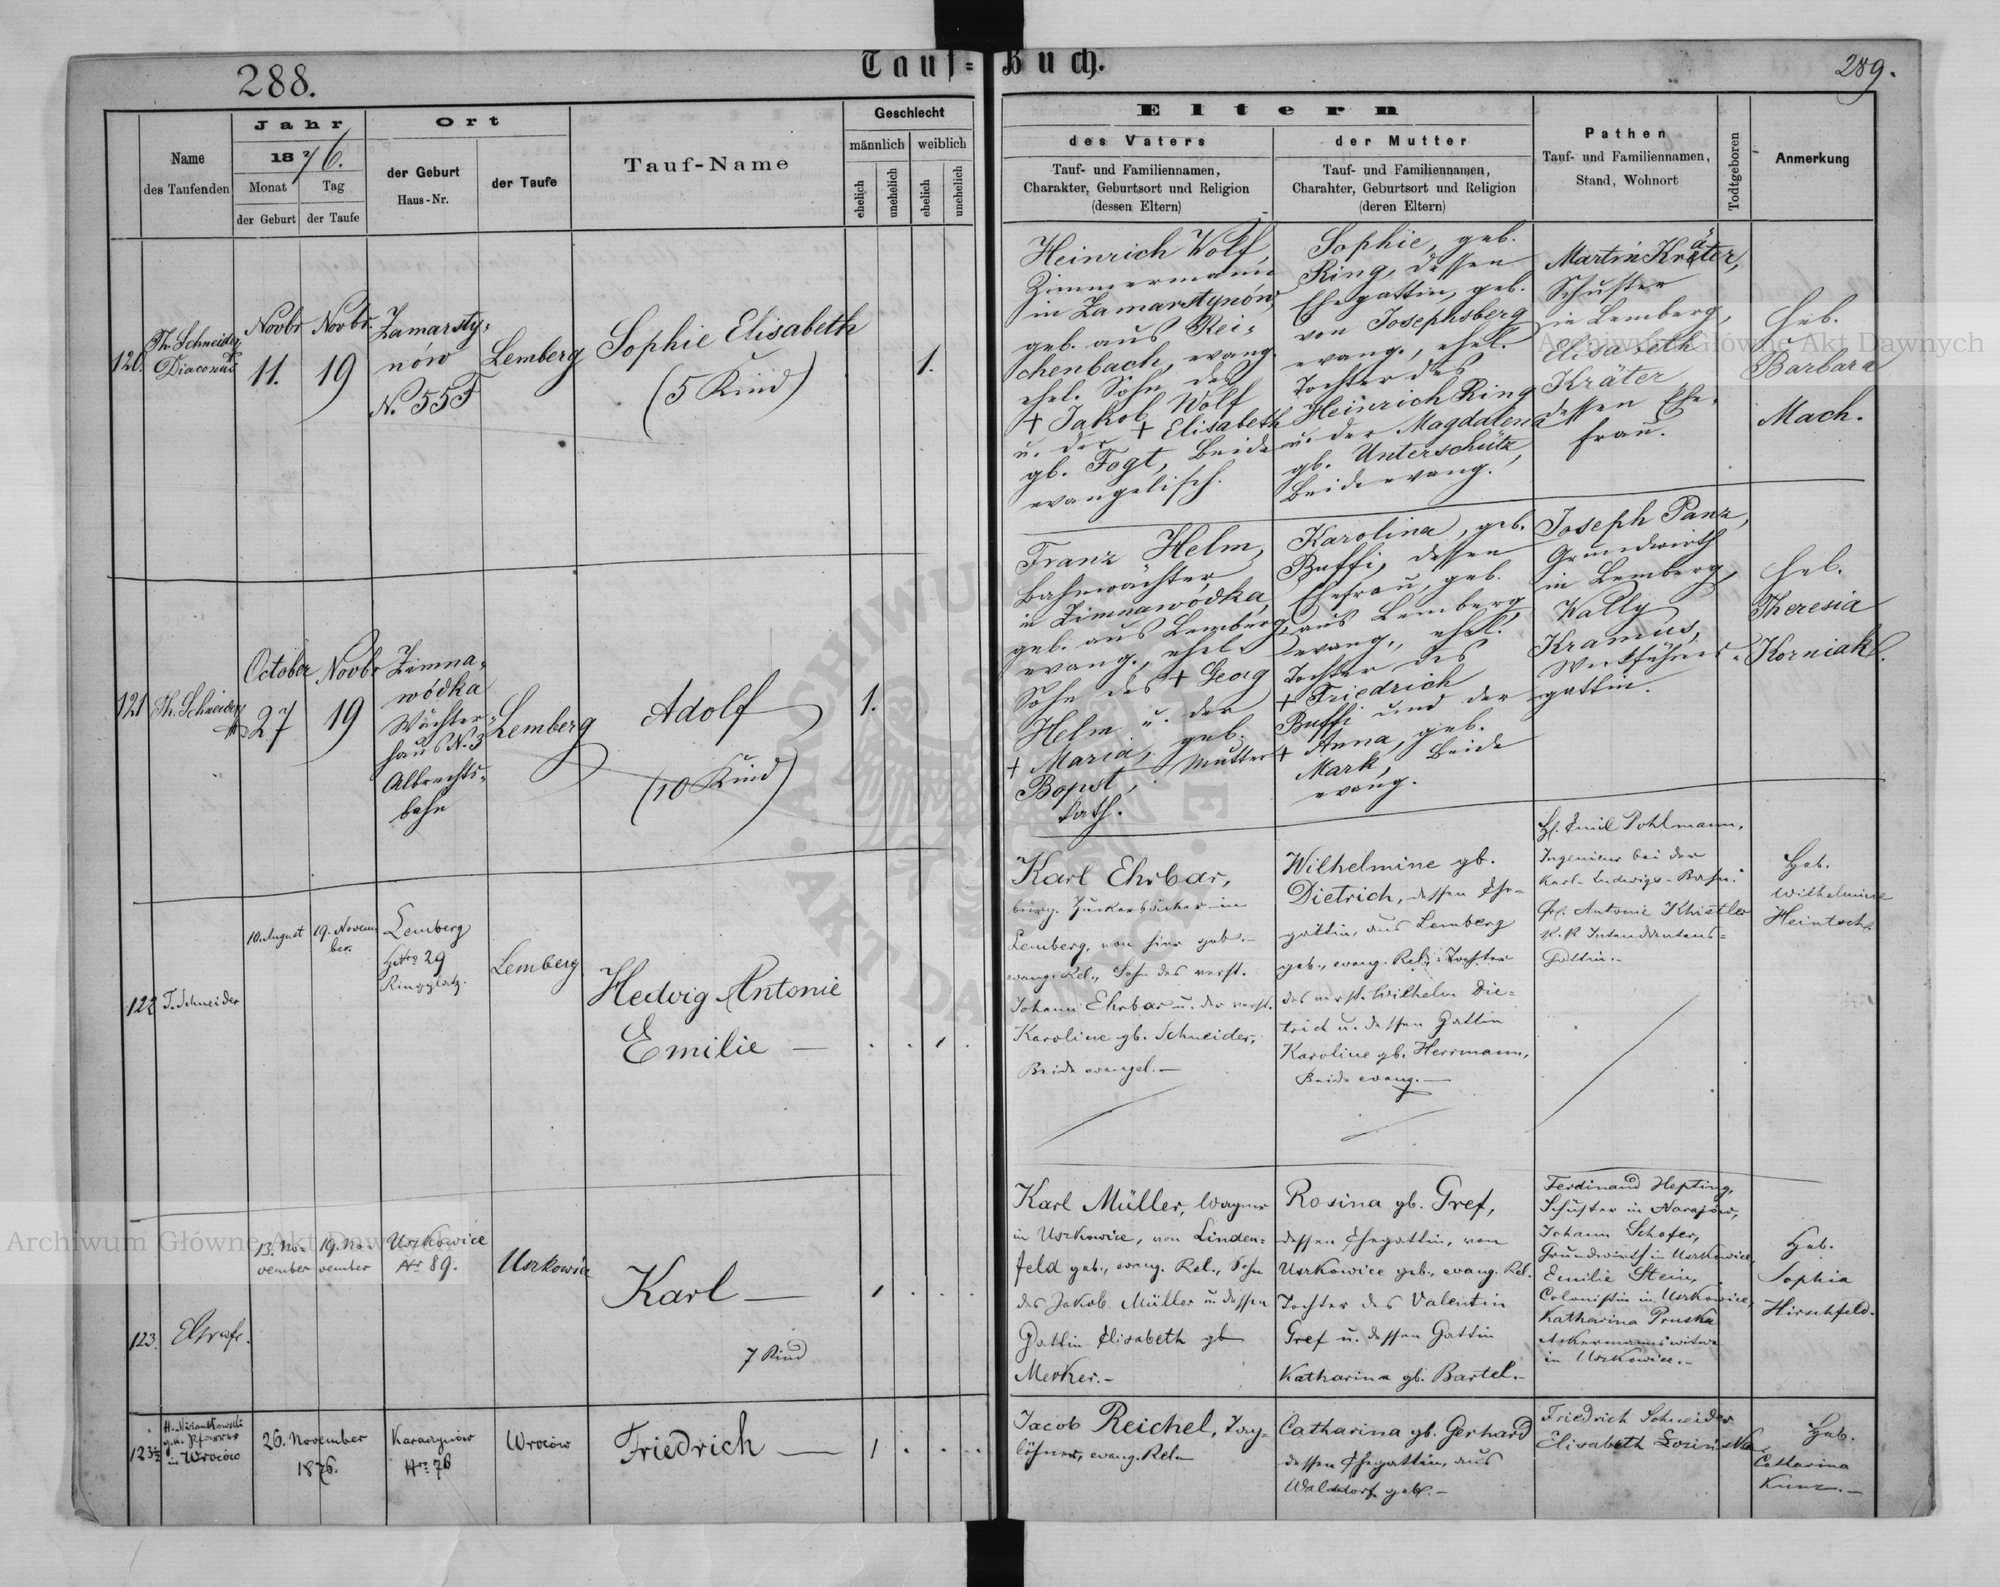 288.
Tauf-Buch.
289.
Name
des Taufenden
Jahr
1876.
Monat
Tag
der Geburt
der Taufe
Ort
der Geburt
Haus-Nr.
der Taufe
Tauf-Name
Geschlecht
männlich
weiblich
ehelich
unehelich
ehelich
unehelich
Eltern
des Vaters
Tauf- und Familiennamen,
Charakter, Geburtsort und Religion
(dessen Eltern)
der Mutter
Tauf- und Familiennamen,
Charahter, Geburtsort und Religion
(deren Eltern)
Pathen
Tauf- und Familiennamen,
Stand, Wohnort
Todtgeboren
Anmerkung
120.
Th. Schneider
Diaconus
Novbr
11.
Novbr.
19
Zamarsty=
nów
N. 55F
Lemberg
Sophie Elisabeth
(5 Kind)
1.
Heinrich Wolf,
Zimmermann
in Zamarstynów,
geb. aus Rei=
chenbach, evang.
ehel. Sohn des
+ Jakob Wolf
u. der + Elisabeth
gb. Fogt, Beide
evangelisch.
Sophie, geb.
Ring, dessen
Ehegattin, geb.
von Josephsberg
evang., ehel.
Tochter des
Heinrich Ring
u. der Magdalena
gb. Unterschütz,
Beide evang.
Martin Kräter,
Schuster
in Lemberg,
Elisabeth
Kräter
dessen Ehe=
frau.
Heb.
Barbara
Mach.
121
Th. Schneider
October
27
Novbr
19
Zimna=
wódka
Wächter=
haus N. 3
Albrechts=
bahn
Lemberg
Adolf
(10 Kind)
1.
Franz Helm,
Bahnwächter
in Zimnawódka,
geb. aus Lemberg,
evang., ehel.
Sohn des + Georg
Helm u. der
+ Maria, geb.
Bopst, Mutter
kath.
Karolina, geb.
Buffi, dessen
Ehefrau, geb.
aus Lemberg
evang., ehel.
Tochter des
+ Friedrich
Buffi und der
+ Anna, geb.
Mark, Beide
evang.
Joseph Panz,
Grundwirth
in Lemberg,
Kally
Kramus,
Werkführers=
gattin.
Heb.
Theresia
Korniak.
122
T. Schneider
10. August
19. Novem
ber.
Lemberg
HNro 29
Ringplatz.
Lemberg
Hedwig Antonie
Emilie —
1
Karl Ehrbar,
bürg. Zuckerbäcker in
Lemberg, von hier geb.
evang. Rel., Sohn des verst.
Johann Ehrbar u. der verst.
Karoline gb. Schneider,
Beide evangel. —
Wilhelmine gb.
Dietrich, dessen Ehe=
gattin, aus Lemberg
geb., evang. Rel., Tochter
des verst. Wilhelm Die=
trich u. dessen Gattin
Karoline gb. Herrmann,
Beide evang. —
H. Emil Pohlmann,
Ingenieur bei der
Karl-Ludwigs-Bahn.
Fr. Antonie Khistler
K. K. Intendantens=
Gattin. —
Heb.
Wilhelmine
Heintsch
123.
13. No=
vember
19. No=
vember
Uszkowice
Nr 89.
Uszkowice
Karl —
7 Kind
1
Karl Müller, Wagner
in Uszkowice, von Linden=
feld geb., evang. Rel., Sohn
des Jakob Müller u. dessen
Gattin Elisabeth gb
Merker. —
Rosina gb. Gref,
dessen Ehegattin, von
Uszkowice geb., evang. Rel.
Tochter des Valentin
Gref u. dessen Gattin
Katharina gb. Bartel. —
Ferdinand Hepting,
Schuster in Narajów,
Johann Schofer,
Grundwirth in Uszkowice,
Emilie Stein,
Colonistin in Uszkowice,
Katharina Pruska
Ackermannswitwe
in Uszkowice. —
Heb.
Sophia
Hirschfeld.
123½
Pfarrer
in Wroców
26. November
1876.
Karaczynów
Nro 76
Wroców
Friedrich —
1
Jacob Reichel, Tag=
löhner, evang. Rel.
Catharina gb. Gerhard
dessen Ehegattin, aus
Walddorf geb. —
Friedrich Schneider
Elisabeth Łozińska
Heb.
Catharina
Kunz. —
Archiwum Główne Akt Dawnych
Archiwum Główne Akt Dawnych